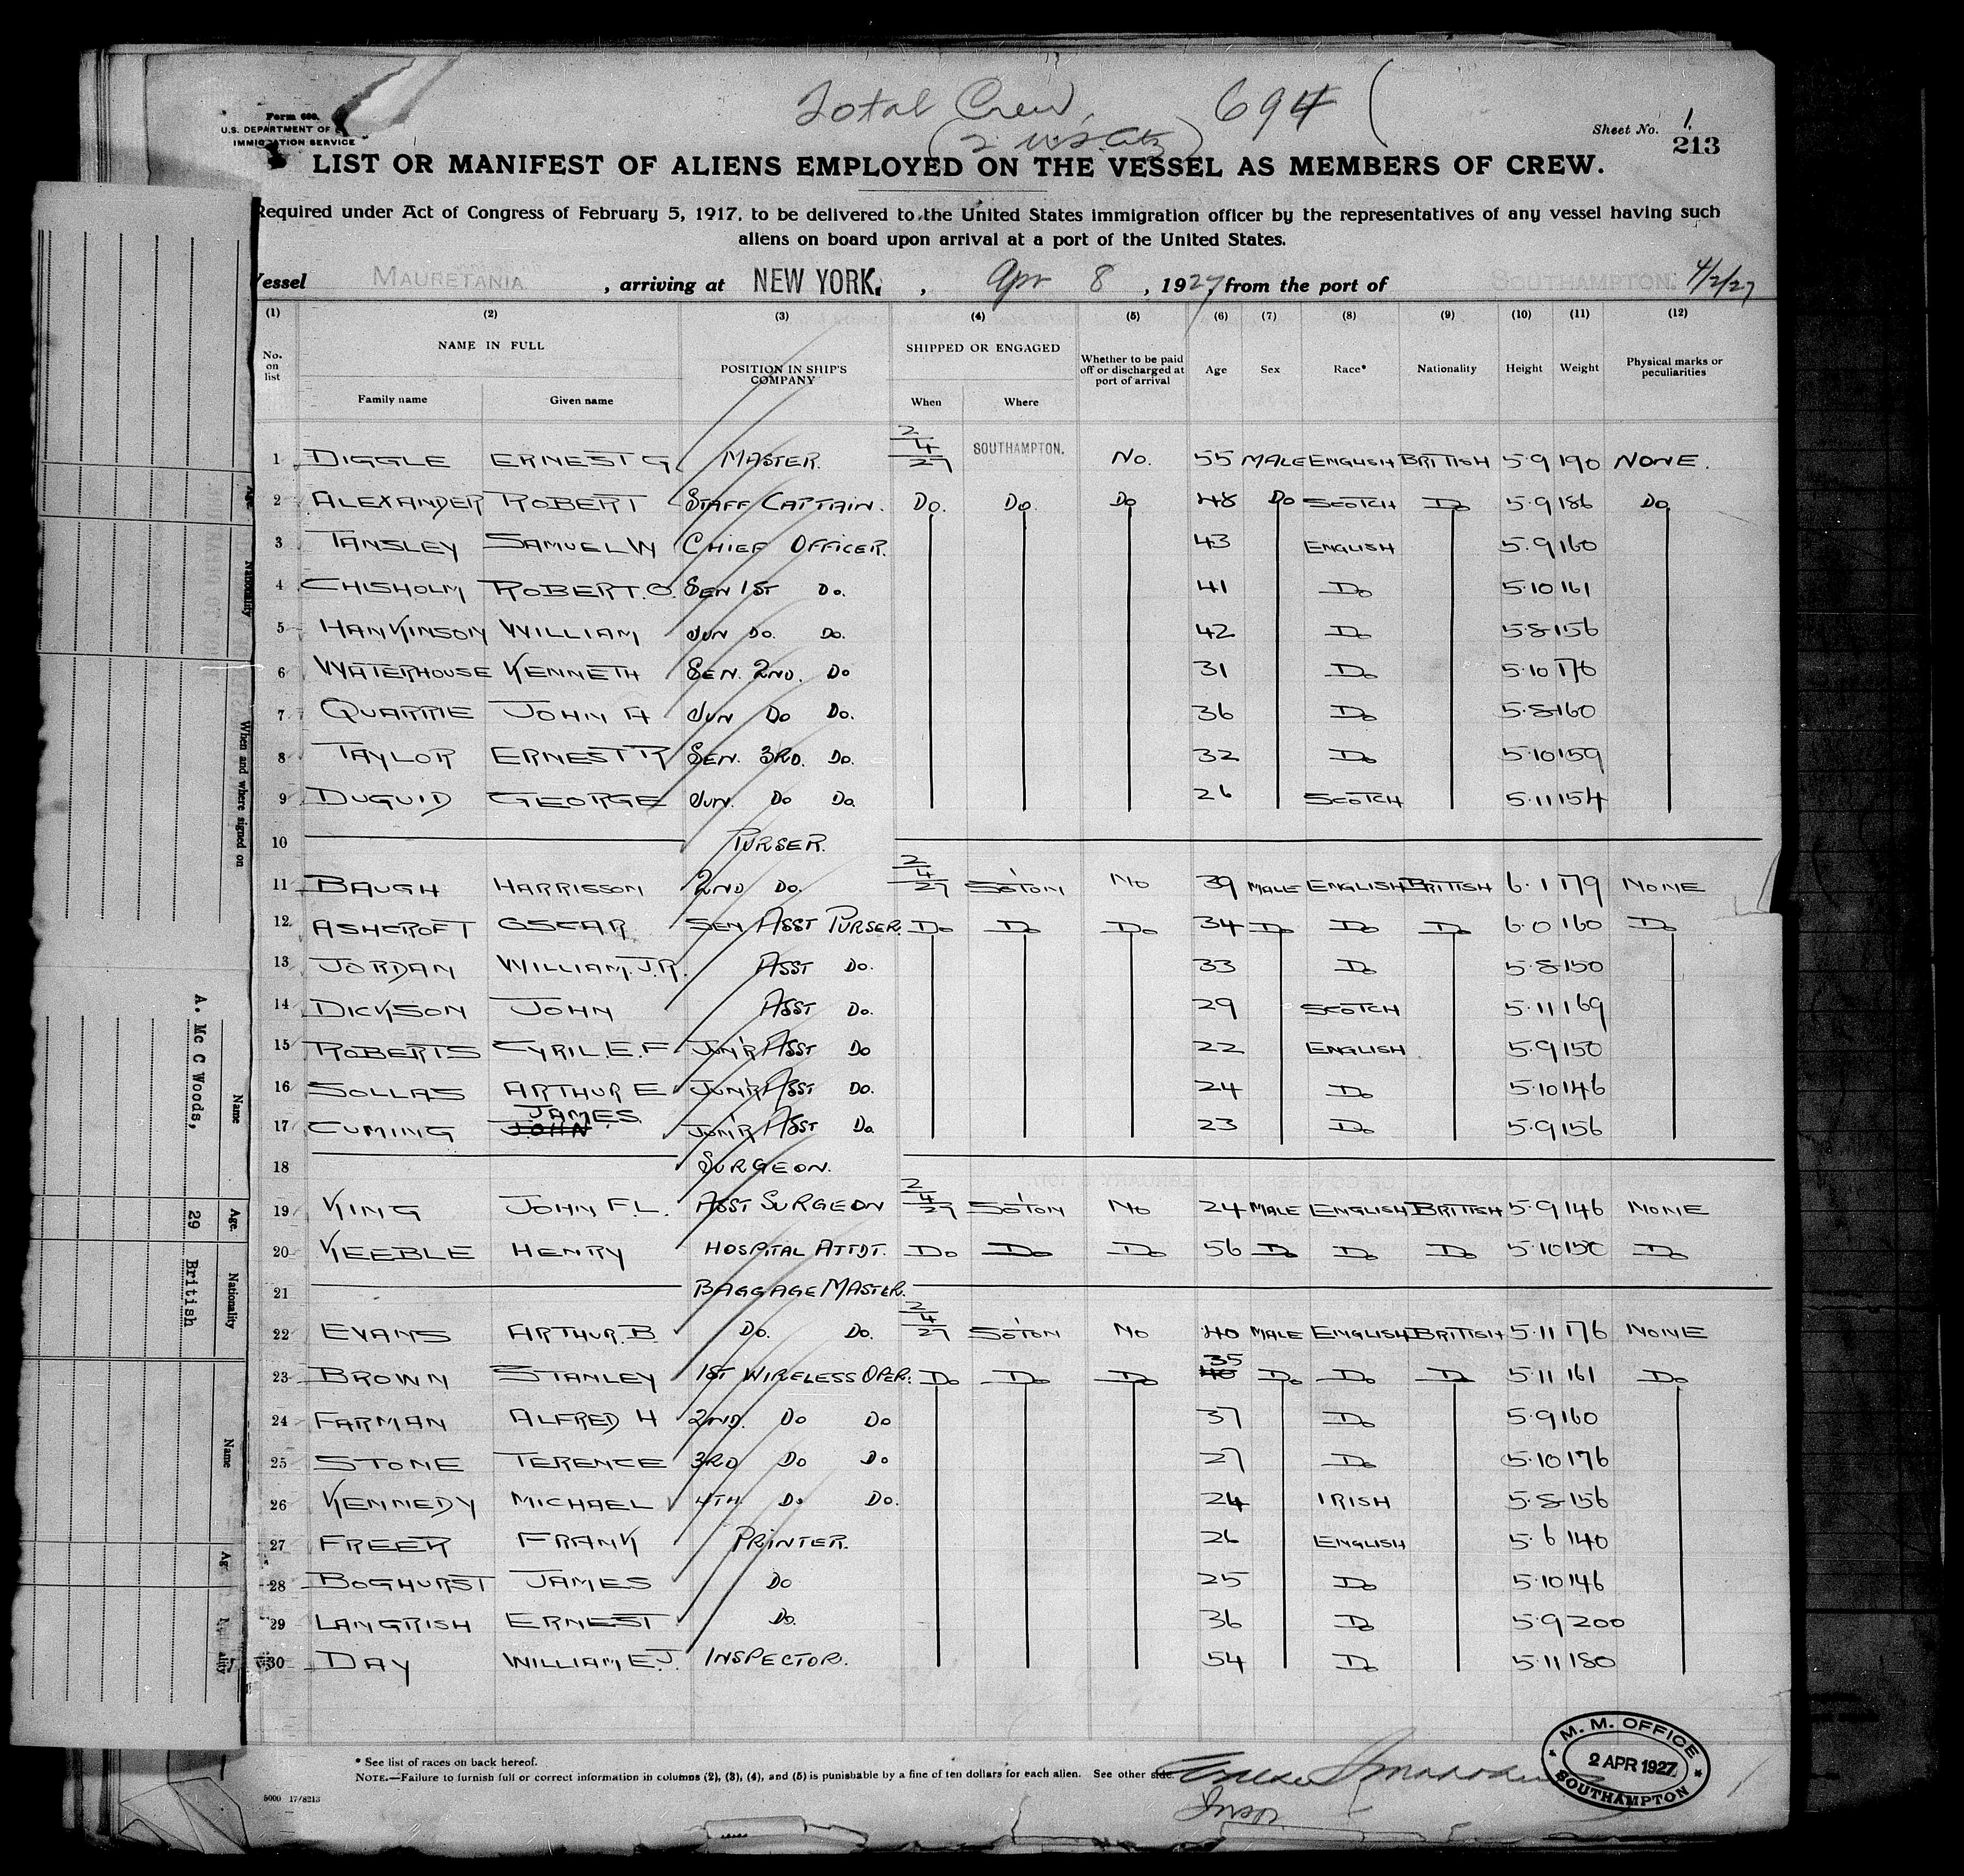 Total Crew, 694 (
(2 U.S. Citz)
Form 680.
U.S. DEPARTMENT OF
IMMIGRATION SERVICE
Sheet No. 1.
213
LIST OR MANIFEST OF ALIENS EMPLOYED ON THE VESSEL AS MEMBERS OF CREW.
Required under Act of Congress of February 5, 1917, to be delivered to the United States immigration officer by the representatives of any vessel having such
aliens on board upon arrival at a port of the United States.
Vessel MAURETANIA , arriving at NEW YORK. , Apr 8 , 1927, from the port of SOUTHAMPTON. 4/2/27
(1) (2) (3) (4) (5) (6) (7) (8) (9) (10) (11) (12)
No. on list NAME IN FULL POSITION IN SHIP'S COMPANY SHIPPED OR ENGAGED Whether to be paid off or discharged at port of arrival Age Sex Race* Nationality Height Weight Physical marks or peculiarities
Family name Given name When Where
1 DIGGLE ERNEST G MASTER. 2/4/27 SOUTHAMPTON. No. 55 MALE ENGLISH BRITISH 5.9 190 NONE.
2 ALEXANDER ROBERT STAFF CAPTAIN. Do. Do. Do 48 Do SCOTCH Do 5.9 186 Do
3 TANSLEY SAMUEL W CHIEF OFFICER. 43 ENGLISH 5.9 160
4 CHISHOLM ROBERT.O. SEN 1ST Do. 41 Do 5.10 161
5 HANKINSON WILLIAM JUN Do. Do. 42 Do 5.8 156
6 WATERHOUSE KENNETH SEN. 2ND. Do 31 Do 5.10 170
7 QUARRIE JOHN A JUN Do Do. 36 Do 5.8 160
8 TAYLOR ERNEST R SEN. 3RD. Do. 32 Do 5.10 159
9 DUGUID GEORGE JUN. Do Do 26 SCOTCH 5.11 154
10 PURSER.
11 BAUGH HARRISSON 2ND Do. 2/4/27 SO'TON No 39 MALE ENGLISH BRITISH 6.1 179 NONE
12 ASHCROFT OSCAR SEN ASST PURSER. Do Do Do 34 Do Do Do 6.0 160 Do
13 JORDAN WILLIAM.J.R. ASST Do. 33 Do 5.8 150
14 DICKSON JOHN ASST Do. 29 SCOTCH 5.11 169
15 ROBERTS CYRIL E.F JUN'R ASST Do 22 ENGLISH 5.9 150
16 SOLLAS ARTHUR E JUN'R ASST Do. 24 Do 5.10 146
JAMES.
17 CUMING JOHN JUN'R ASST Do 23 Do 5.9 156
18 SURGEON.
19 KING JOHN F.L. ASST SURGEON 2/4/27 SO'TON No 24 MALE ENGLISH BRITISH 5.9 146 NONE
20 KEEBLE HENRY HOSPITAL ATTDT. Do Do Do 56 Do Do Do 5.10 150 Do
21 BAGGAGE MASTER.
22 EVANS ARTHUR.B. Do. Do. 2/4/27 SO'TON No 40 MALE ENGLISH BRITISH 5.11 176 NONE
35
23 BROWN STANLEY 1ST WIRELESS OPER. Do Do Do 40 Do Do Do 5.11 161 Do
24 FARMAN ALFRED H 2ND. Do Do 37 Do 5.9 160
25 STONE TERENCE 3RD Do Do 27 Do 5.10 176
26 KENNEDY MICHAEL 4TH Do Do. 24 IRISH 5.8 156
27 FREER FRANK PRINTER. 26 ENGLISH 5.6 140
28 BOGHURST JAMES Do 25 Do 5.10 146
29 LANGRISH ERNEST Do. 36 Do 5.9 200
30 DAY WILLIAM E.J. INSPECTOR. 54 Do 5.11 180
* See list of races on back hereof.
NOTE.—Failure to furnish full or correct information in columns (2), (3), (4), and (5) is punishable by a fine of ten dollars for each alien. See other side.
5000 17/8213
Insp
M. M. OFFICE
2 APR 1927
SOUTHAMPTON
Age
Nationality
When and where signed on
Name
A. Mc C Woods,
Age.
29
Nationality
British
Name